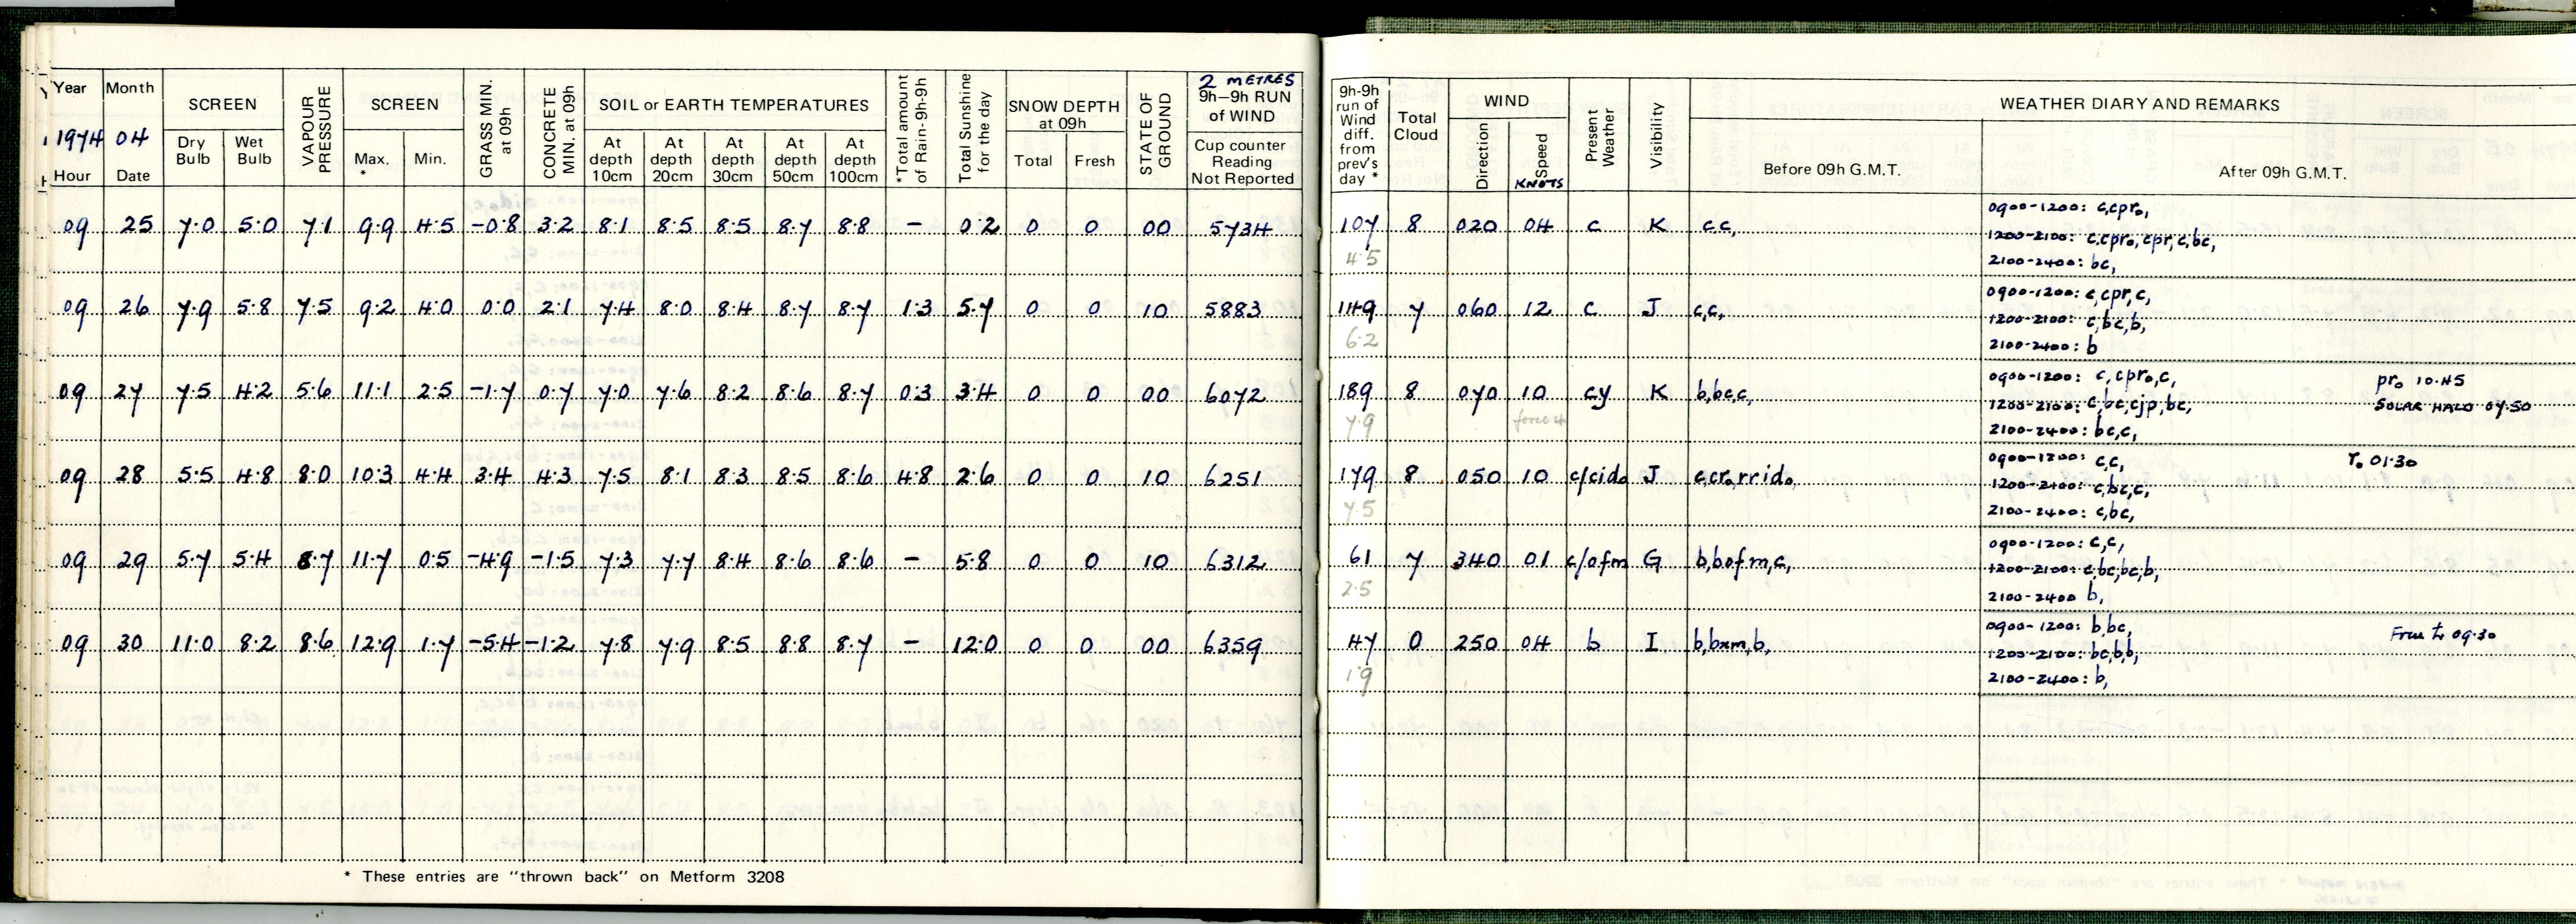 Year Month SCREEN VAPOUR PRESSURE SCREEN GRASS MIN. at 09h CONCRETE MIN. at 09h SOIL or EARTH TEMPERATURES *Total amount of Rain-9h-9h Total Sunshine for the day SNOW DEPTH at 09h STATE OF GROUND 2 METRES 9h-9h RUN of WIND
1974 04 Dry Bulb Wet Bulb Max. * Min. At depth 10cm At depth 20cm At depth 30cm At depth 50cm At depth 100cm Total Fresh Cup counter Reading Not Reported
Hour Date
9h-9h run of Wind diff. from prev's day * Total Cloud WIND Direction Speed KNOTS Present Weather Visibility WEATHER DIARY AND REMARKS
Before 09h G.M.T. After 09h G.M.T.
09 25 7.0 5.0 7.1 9.9 4.5 -0.8 3.2 8.1 8.5 8.5 8.7 8.8 - 0.2 0 0 00 5734 107 8 020 04 c K c,c,
4.5
0900-1200: c,cpr₀,
1200-2100: c,cpr₀,cpr,c,bc,
2100-2400: bc,
09 26 7.9 5.8 7.5 9.2 4.0 0.0 2.1 7.4 8.0 8.4 8.7 8.7 1.3 5.7 0 0 10 5883 149 7 060 12 c J c,c,
6.2
0900-1200: c,cpr,c,
1200-2100: c,bc,b,
2100-2400: b
09 27 7.5 4.2 5.6 11.1 2.5 -1.7 0.7 7.0 7.6 8.2 8.6 8.7 0.3 3.4 0 0 00 6072 189 8 070 10 cy K b,bc,c,
7.9 force 4
0900-1200: c,cpr₀,c, pr₀ 10.45
1200-2100: c,bc,cjp,bc, SOLAR HALO 07.50
2100-2400: bc,c,
09 28 5.5 4.8 8.0 10.3 4.4 3.4 4.3 7.5 8.1 8.3 8.5 8.6 4.8 2.6 0 0 10 6251 179 8 050 10 c/cid₀ J c,cr₀,r,rid₀,
7.5
0900-1200: c,c, r₀ 01.30
1200-2100: c,bc,c,
2100-2400: c,bc,
09 29 5.7 5.4 8.7 11.7 0.5 -4.9 -1.5 7.3 7.7 8.4 8.6 8.6 - 5.8 0 0 10 6312 61 7 340 01 c/ofm G b,bofm,c,
2.5
0900-1200: c,c,
1200-2100: c,bc,bc,b,
2100-2400 b,
09 30 11.0 8.2 8.6 12.9 1.7 -5.4 -1.2 7.8 7.9 8.5 8.8 8.7 - 12.0 0 0 00 6359 47 0 250 04 b I b,bxm,b,
1.9
0900-1200: b,bc, 09.30
1200-2100: bc,b,b,
2100-2400: b,
* These entries are "thrown back" on Metform 3208